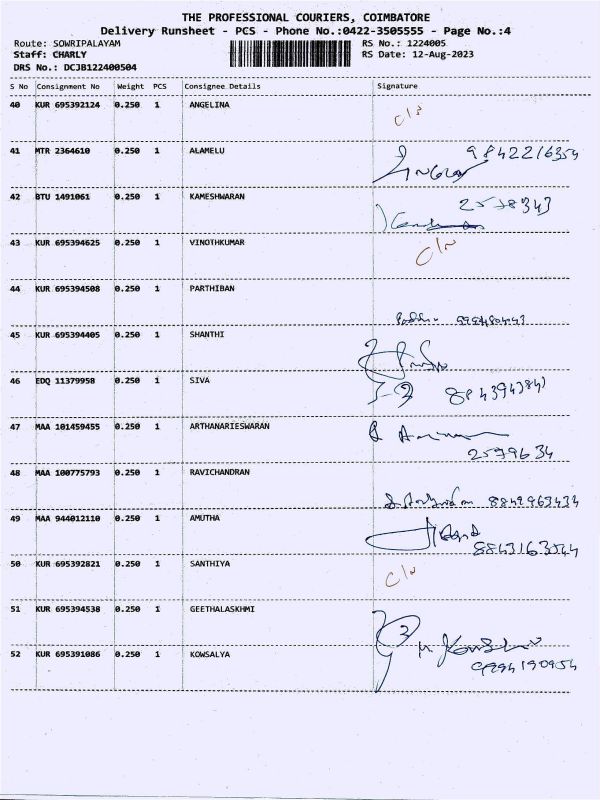 THE PROFESSIONAL COURIERS, COIMBATORE
Delivery Runsheet - PCS - Phone No.:0422-3505555 - Page No.:4
Route: SOWRIPALAYAM RS No.: 1224005
Staff: CHARLY RS Date: 12-Aug-2023
DRS No.: DCJB122400504
S No Consignment No Weight PCS Consignee Details Signature
40 KUR 695392124 0.250 1 ANGELINA
C/N
41 MTR 2364610 0.250 1 ALAMELU 9842216354
42 BTU 1491061 0.250 1 KAMESHWARAN
43 KUR 695394625 0.250 1 VINOTHKUMAR C/N
44 KUR 695394508 0.250 1 PARTHIBAN
45 KUR 695394405 0.250 1 SHANTHI
46 EDQ 11379958 0.250 1 SIVA
47 MAA 101459455 0.250 1 ARTHANARIESWARAN
2579634
48 MAA 100775793 0.250 1 RAVICHANDRAN
49 MAA 944012110 0.250 1 AMUTHA
50 KUR 695392821 0.250 1 SANTHIYA C/N
51 KUR 695394538 0.250 1 GEETHALASKHMI
52 KUR 695391086 0.250 1 KOWSALYA
9994190954